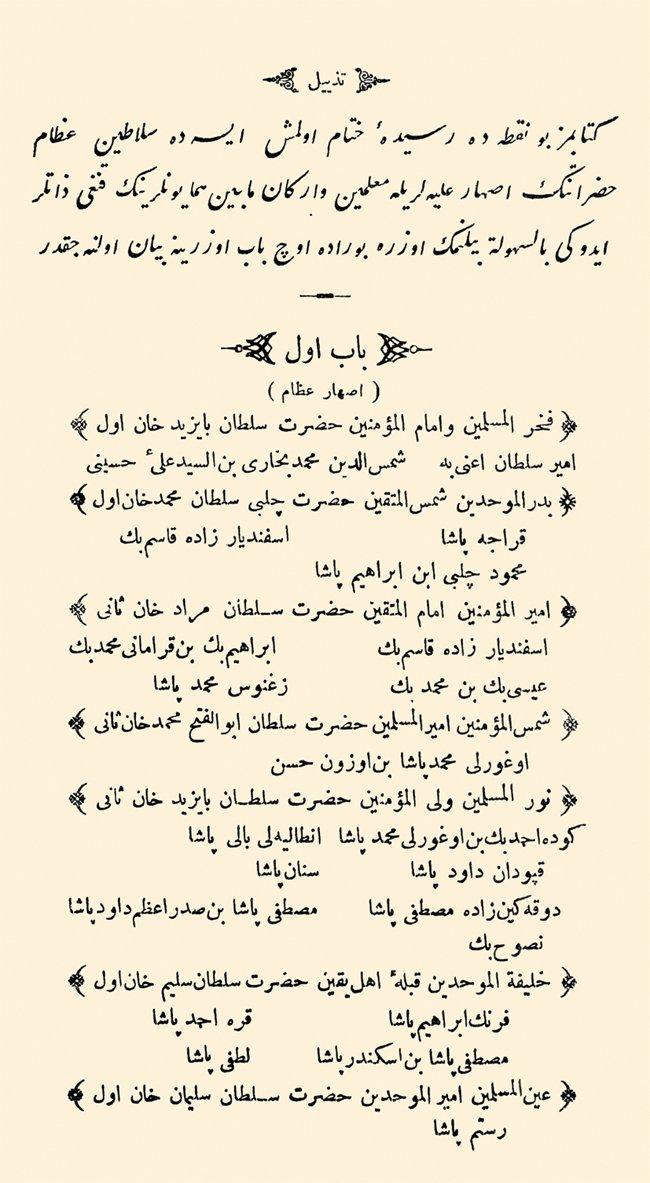 تذييل
كتابمز بو نقطه ده رسيدهٔ ختام اولمش ايسه ده سلاطين عظام
حضراتنك اصهار عليه لريله معلمين واركان مابين همايونلرينك قنغى ذاتلر
ايدوكى بالسهولة بيلنمك اوزره بوراده اوچ باب اوزرينه بيان اولنه جقدر
باب اول
( اصهار عظام )
﴿ فخر المسلمين وامام المؤمنين حضرت سلطان بايزيد خان اول ﴾
امير سلطان اعنى به شمس الدين محمد بخارى بن السيد على ٔ حسينى
﴿ بدر الموحدين شمس المتقين حضرت چلبى سلطان محمد خان اول ﴾
قراجه پاشا اسفنديار زاده قاسم بك
محمود چلبى ابن ابراهيم پاشا
﴿ امير المؤمنين امام المتقين حضرت سلطان مراد خان ثانى ﴾
اسفنديار زاده قاسم بك ابراهيم بك بن قرامانى محمد بك
عيسى بك بن محمد بك زغنوس محمد پاشا
﴿ شمس المؤمنين امير المسلمين حضرت سلطان ابو الفتح محمد خان ثانى ﴾
اوغورلى محمد پاشا بن اوزون حسن
﴿ نور المسلمين ولى المؤمنين حضرت سلطان بايزيد خان ثانى ﴾
كوده احمد بك بن اوغورلى محمد پاشا انطاليه لى بالى پاشا
قپودان داود پاشا سنان پاشا
دوقه كين زاده مصطفى پاشا مصطفى پاشا بن صدر اعظم داود پاشا
نصوح بك
﴿ خليفة الموحدين قبلهٔ اهل يقين حضرت سلطان سليم خان اول ﴾
فرنك ابراهيم پاشا قره احمد پاشا
مصطفى پاشا بن اسكندر پاشا لطفى پاشا
﴿ عين المسلمين امير الموحدين حضرت سلطان سليمان خان اول ﴾
رستم پاشا